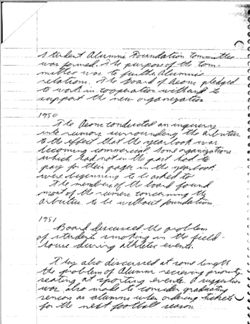 Student Alumni Foundation Committee
was formed. The purpose of the Com-
mittee was to further Alumni
relations. The Board of Aeons pledged
to work in cooperation with and to
support the new organization
1950
The Aeons conducted an inquiry
into rumors surrounding the arbutus
to the effect that the yearbook was
becoming commercial. Some organizations
which had not in the past had to
pay for their pages in the yearbook
were beginning to be asked to.
The members of the board found
most of the rumors concerning the
arbutus to be without foundation.
1951
Board discussed the problem
of students smoking in the field-
house during athletic events.
They also discussed at some length
the problem of Alumni receiving priority
seating at sporting events. A suggestion
was also made to consider graduating
seniors as alumni when ordering tickets
for the next football season